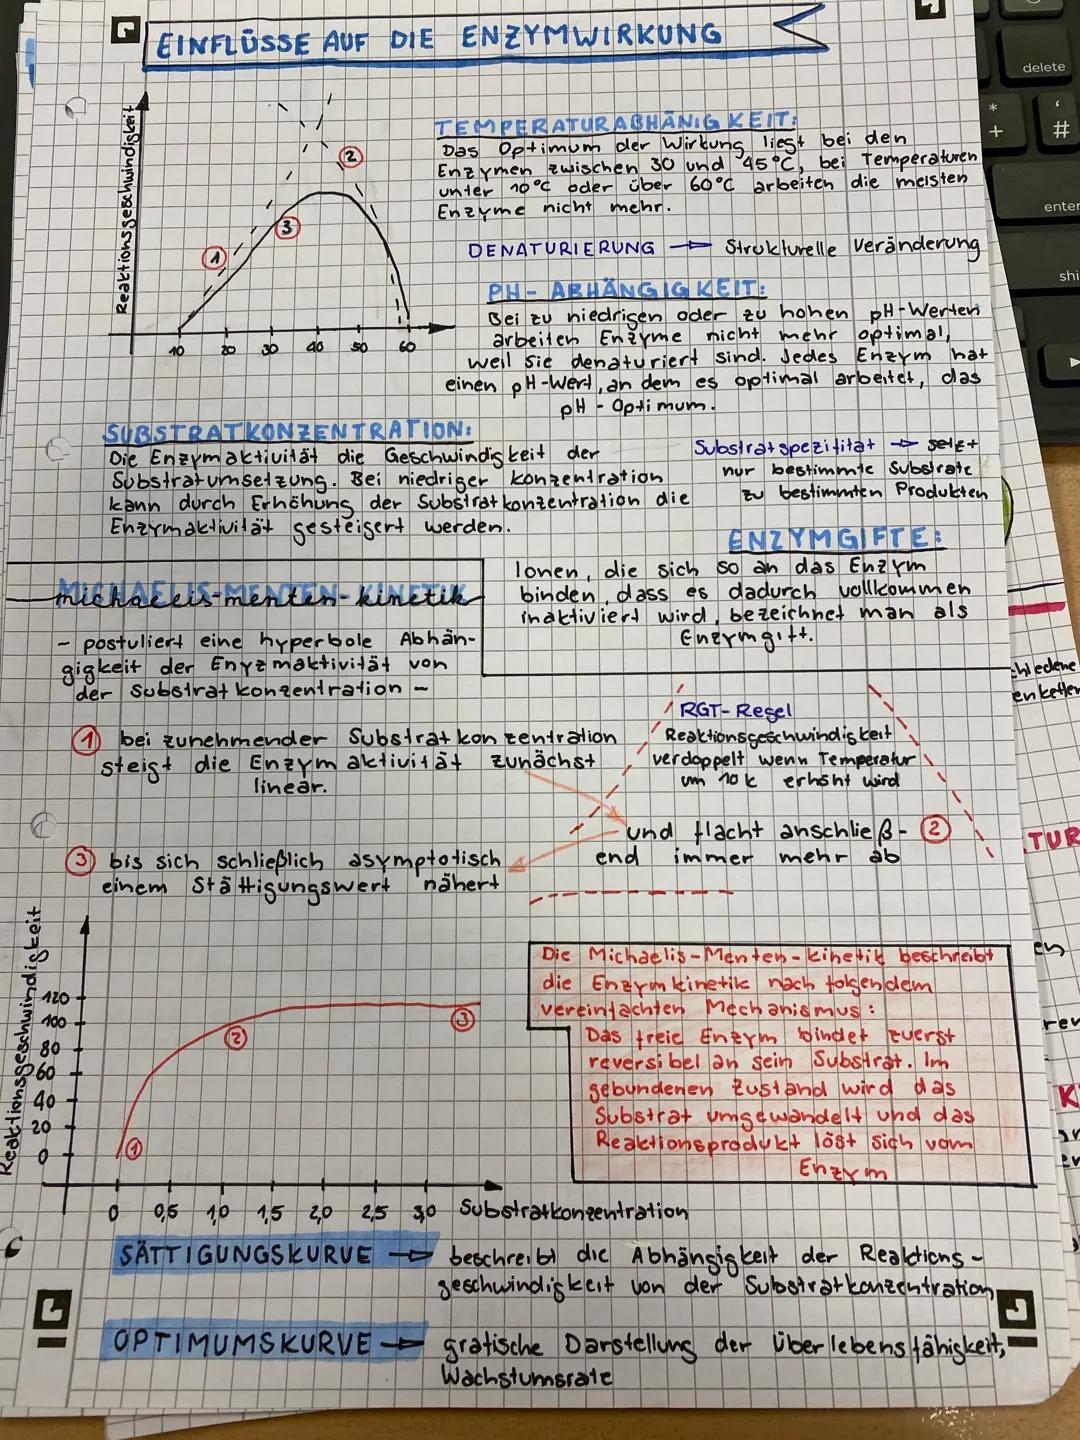 EINFLÜSSE AUF DIE ENZYMWIRKUNG
Reaktionsgeschwindigkeit
1
2
3
10 20 30 40 50 60
TEMPERATURABHÄNIGKEIT:
Das Optimum der Wirkung liegt bei den
Enzymen zwischen 30 und 45°C, bei Temperaturen
unter 10°C oder über 60°C arbeiten die meisten
Enzyme nicht mehr.
DENATURIERUNG → Strukturelle Veränderung
PH-ABHÄNGIGKEIT:
Bei zu niedrigen oder zu hohen pH-Werten
arbeiten Enzyme nicht mehr optimal,
weil sie denaturiert sind. Jedes Enzym hat
einen pH-Wert, an dem es optimal arbeitet, das
pH-Optimum.
SUBSTRATKONZENTRATION:
Die Enzymaktivität die Geschwindigkeit der
Substratumsetzung. Bei niedriger Konzentration
kann durch Erhöhung der Substratkonzentration die
Enzymaktivität gesteigert werden.
Substratspezifität → setzt
nur bestimmte Substrate
zu bestimmten Produkten
ENZYMGIFTE:
Ionen, die sich so an das Enzym
binden, dass es dadurch vollkommen
inaktiviert wird, bezeichnet man als
Enzymgift.
MICHAELIS-MENTEN-KINETIK
- postuliert eine hyperbole Abhän-
gigkeit der Enyzmaktivität von
der Substratkonzentration -
1 bei zunehmender Substratkonzentration
steigt die Enzymaktivität zunächst
linear.
RGT-Regel
Reaktionsgeschwindigkeit
verdoppelt wenn Temperatur
um 10k erhöht wird
und flacht anschließ- 2
end immer mehr ab
3 bis sich schließlich asymptotisch
einem Stättigungswert nähert
Reaktionsgeschwindigkeit
120
100
80
60
40
20
0
1
2
3
0 0,5 1,0 1,5 2,0 2,5 3,0 Substratkonzentration
Die Michaelis-Menten-kinetik beschreibt
die Enzymkinetik nach folgendem
vereinfachten Mechanismus:
Das freie Enzym bindet zuerst
reversibel an sein Substrat. Im
gebundenen Zustand wird das
Substrat umgewandelt und das
Reaktionsprodukt löst sich vom
Enzym
SÄTTIGUNGSKURVE → beschreibt die Abhängigkeit der Reaktions-
geschwindigkeit von der Substratkonzentration
OPTIMUMSKURVE → grafische Darstellung der Überlebensfähigkeit,
Wachstumsrate
delete
*
+
‘
#
enter
shi
chiedene
enketten
TUR
en
rev
K